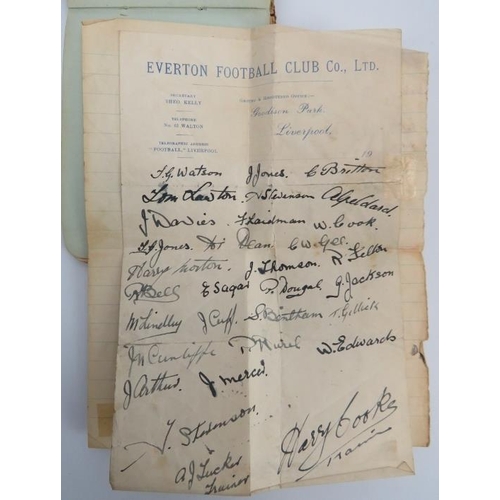 EVERTON FOOTBALL CLUB CO., LTD.
SECRETARY
THEO. KELLY
TELEPHONE
No. 95 WALTON
TELEGRAPHIC ADDRESS
"FOOTBALL," LIVERPOOL
Goodison Park,
Liverpool,
19
T.G. Watson J Jones. C Britton
Tom Lawton. A Stevenson A Geldard.
J Davies W. Cook.
T.G. Jones. Dean. C.W. Gee.
Harry Morton. J. Thomson. R Felton
R Bell E Sagar P. Dougal G. Jackson
M Lindley J Cuff. S. Bentham T. Gillick
J N Cunliffe W. Edwards
J Arthur. J. Mercer
T. Stevenson.
A J Tucker
Trainer
Harry Cooke
Trainer